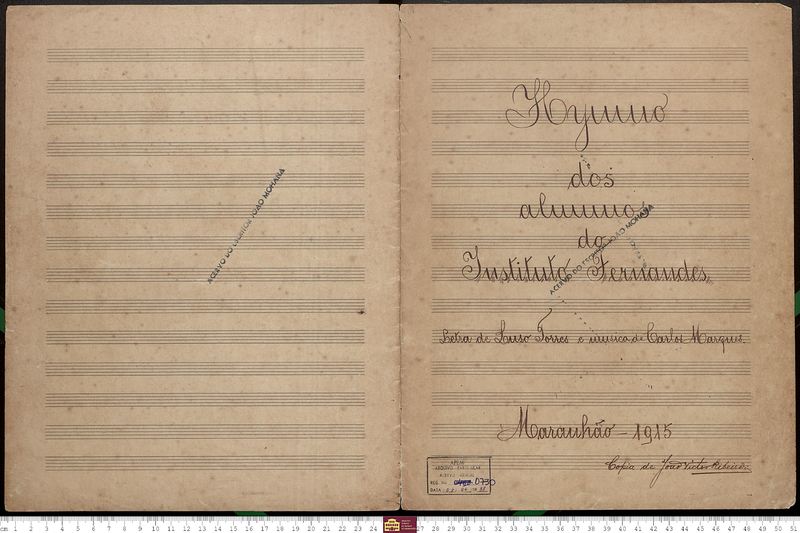 ACERVO DO ESCRITOR JOÃO MOHANA
Hymno
dos
alumnos
do
Instituto Fernandes,
ACERVO DO ESCRITOR JOÃO MOHANA
Letra de Luso Torres e musica de Carlos Marques.
Maranhão - 1915
Copia de João Victor Ribeiro
APEM
ARQUIVO PARTICULAR
REG. No. 0730
DATA
cm 1 2 3 4 5 6 7 8 9 10 11 12 13 14 15 16 17 18 19 20 21 22 23 24 27 28 29 30 31 32 33 34 35 36 37 38 39 40 41 42 43 44 45 46 47 48 49 50 51